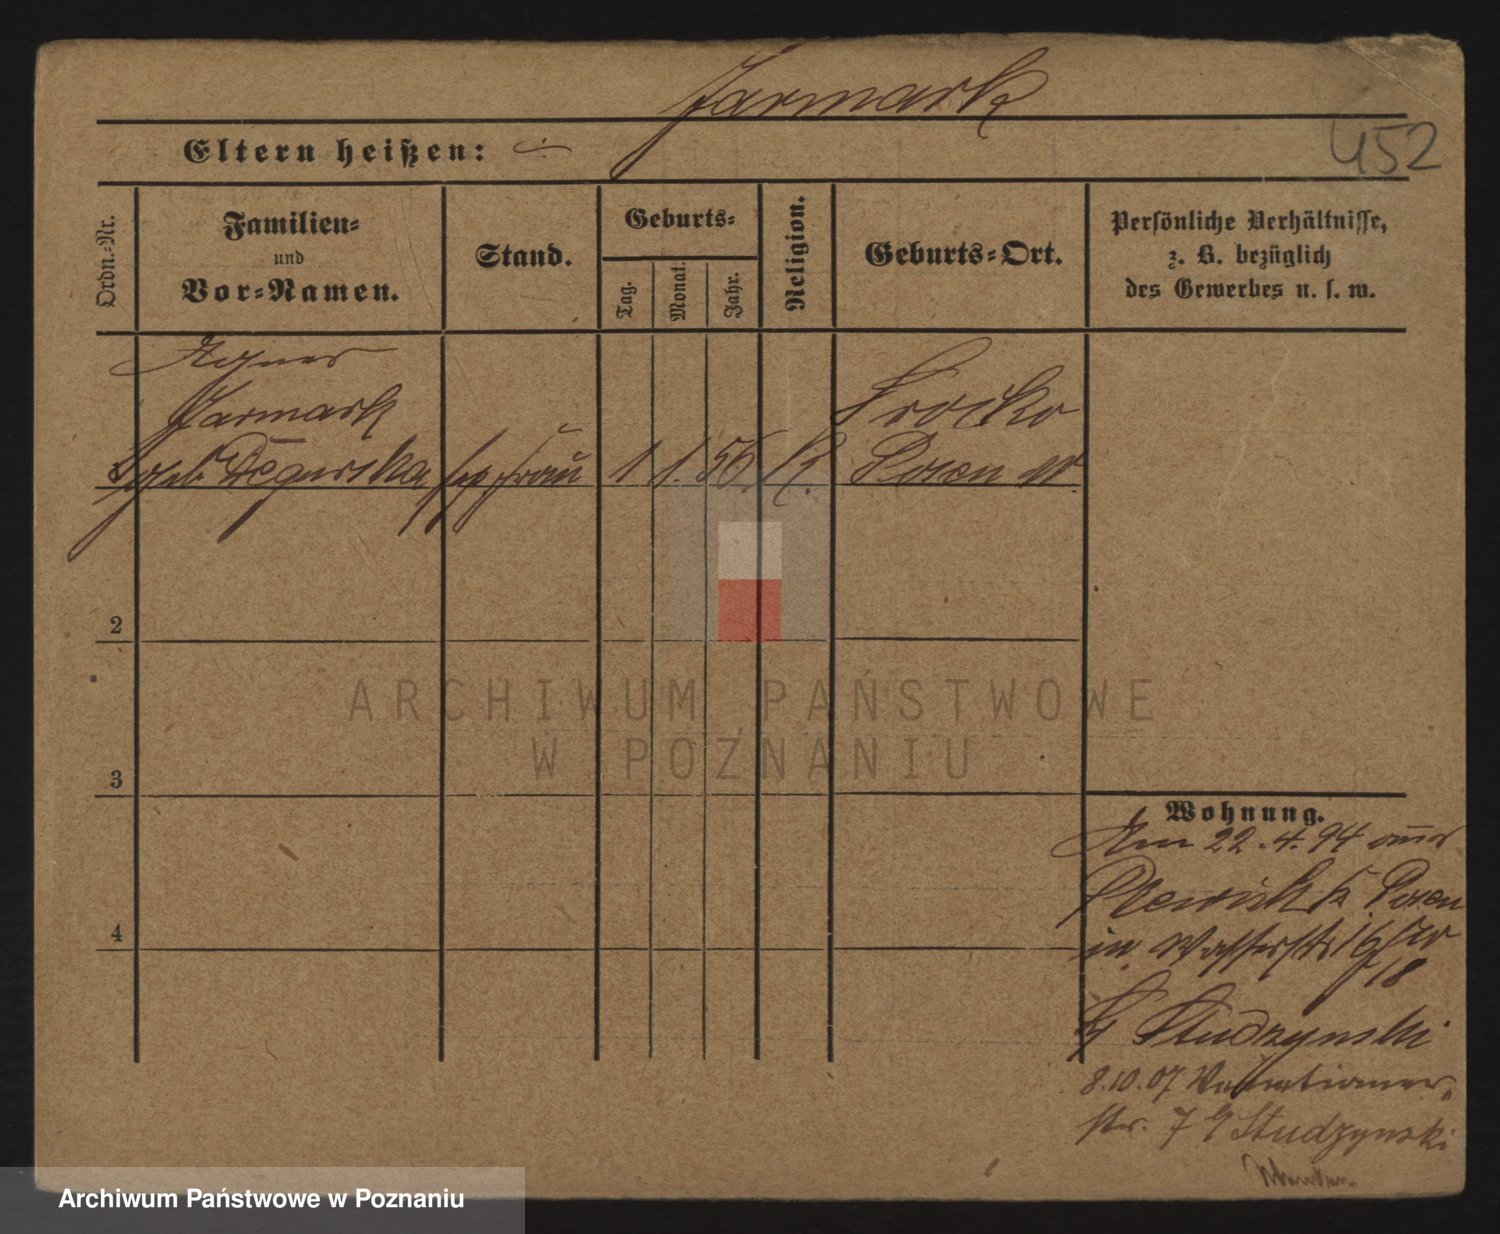 Jarmark
452
Eltern heißen: ÷
Ordn.-Nr.
Familien-
und
Vor-Namen.
Stand.
Geburts-
Tag.
Monat.
Jahr.
Religion.
Geburts-Ort.
Persönliche Verhältnisse,
z. B. bezüglich
des Gewerbes u. s. w.
Agnes
Jarmark
geb. Degurska
sep Frau
1
1.
56.
k.
Srocko
Posen W.
2
3
4
Wohnung.
Am 22.4.94 aus
Plewisk Kr. Posen
in Wasserstr 16
18
b/ Studzynski
8.10.07
str. 7 b/ Studzynski
ARCHIWUM PAŃSTWOWE
W POZNANIU
Archiwum Państwowe w Poznaniu